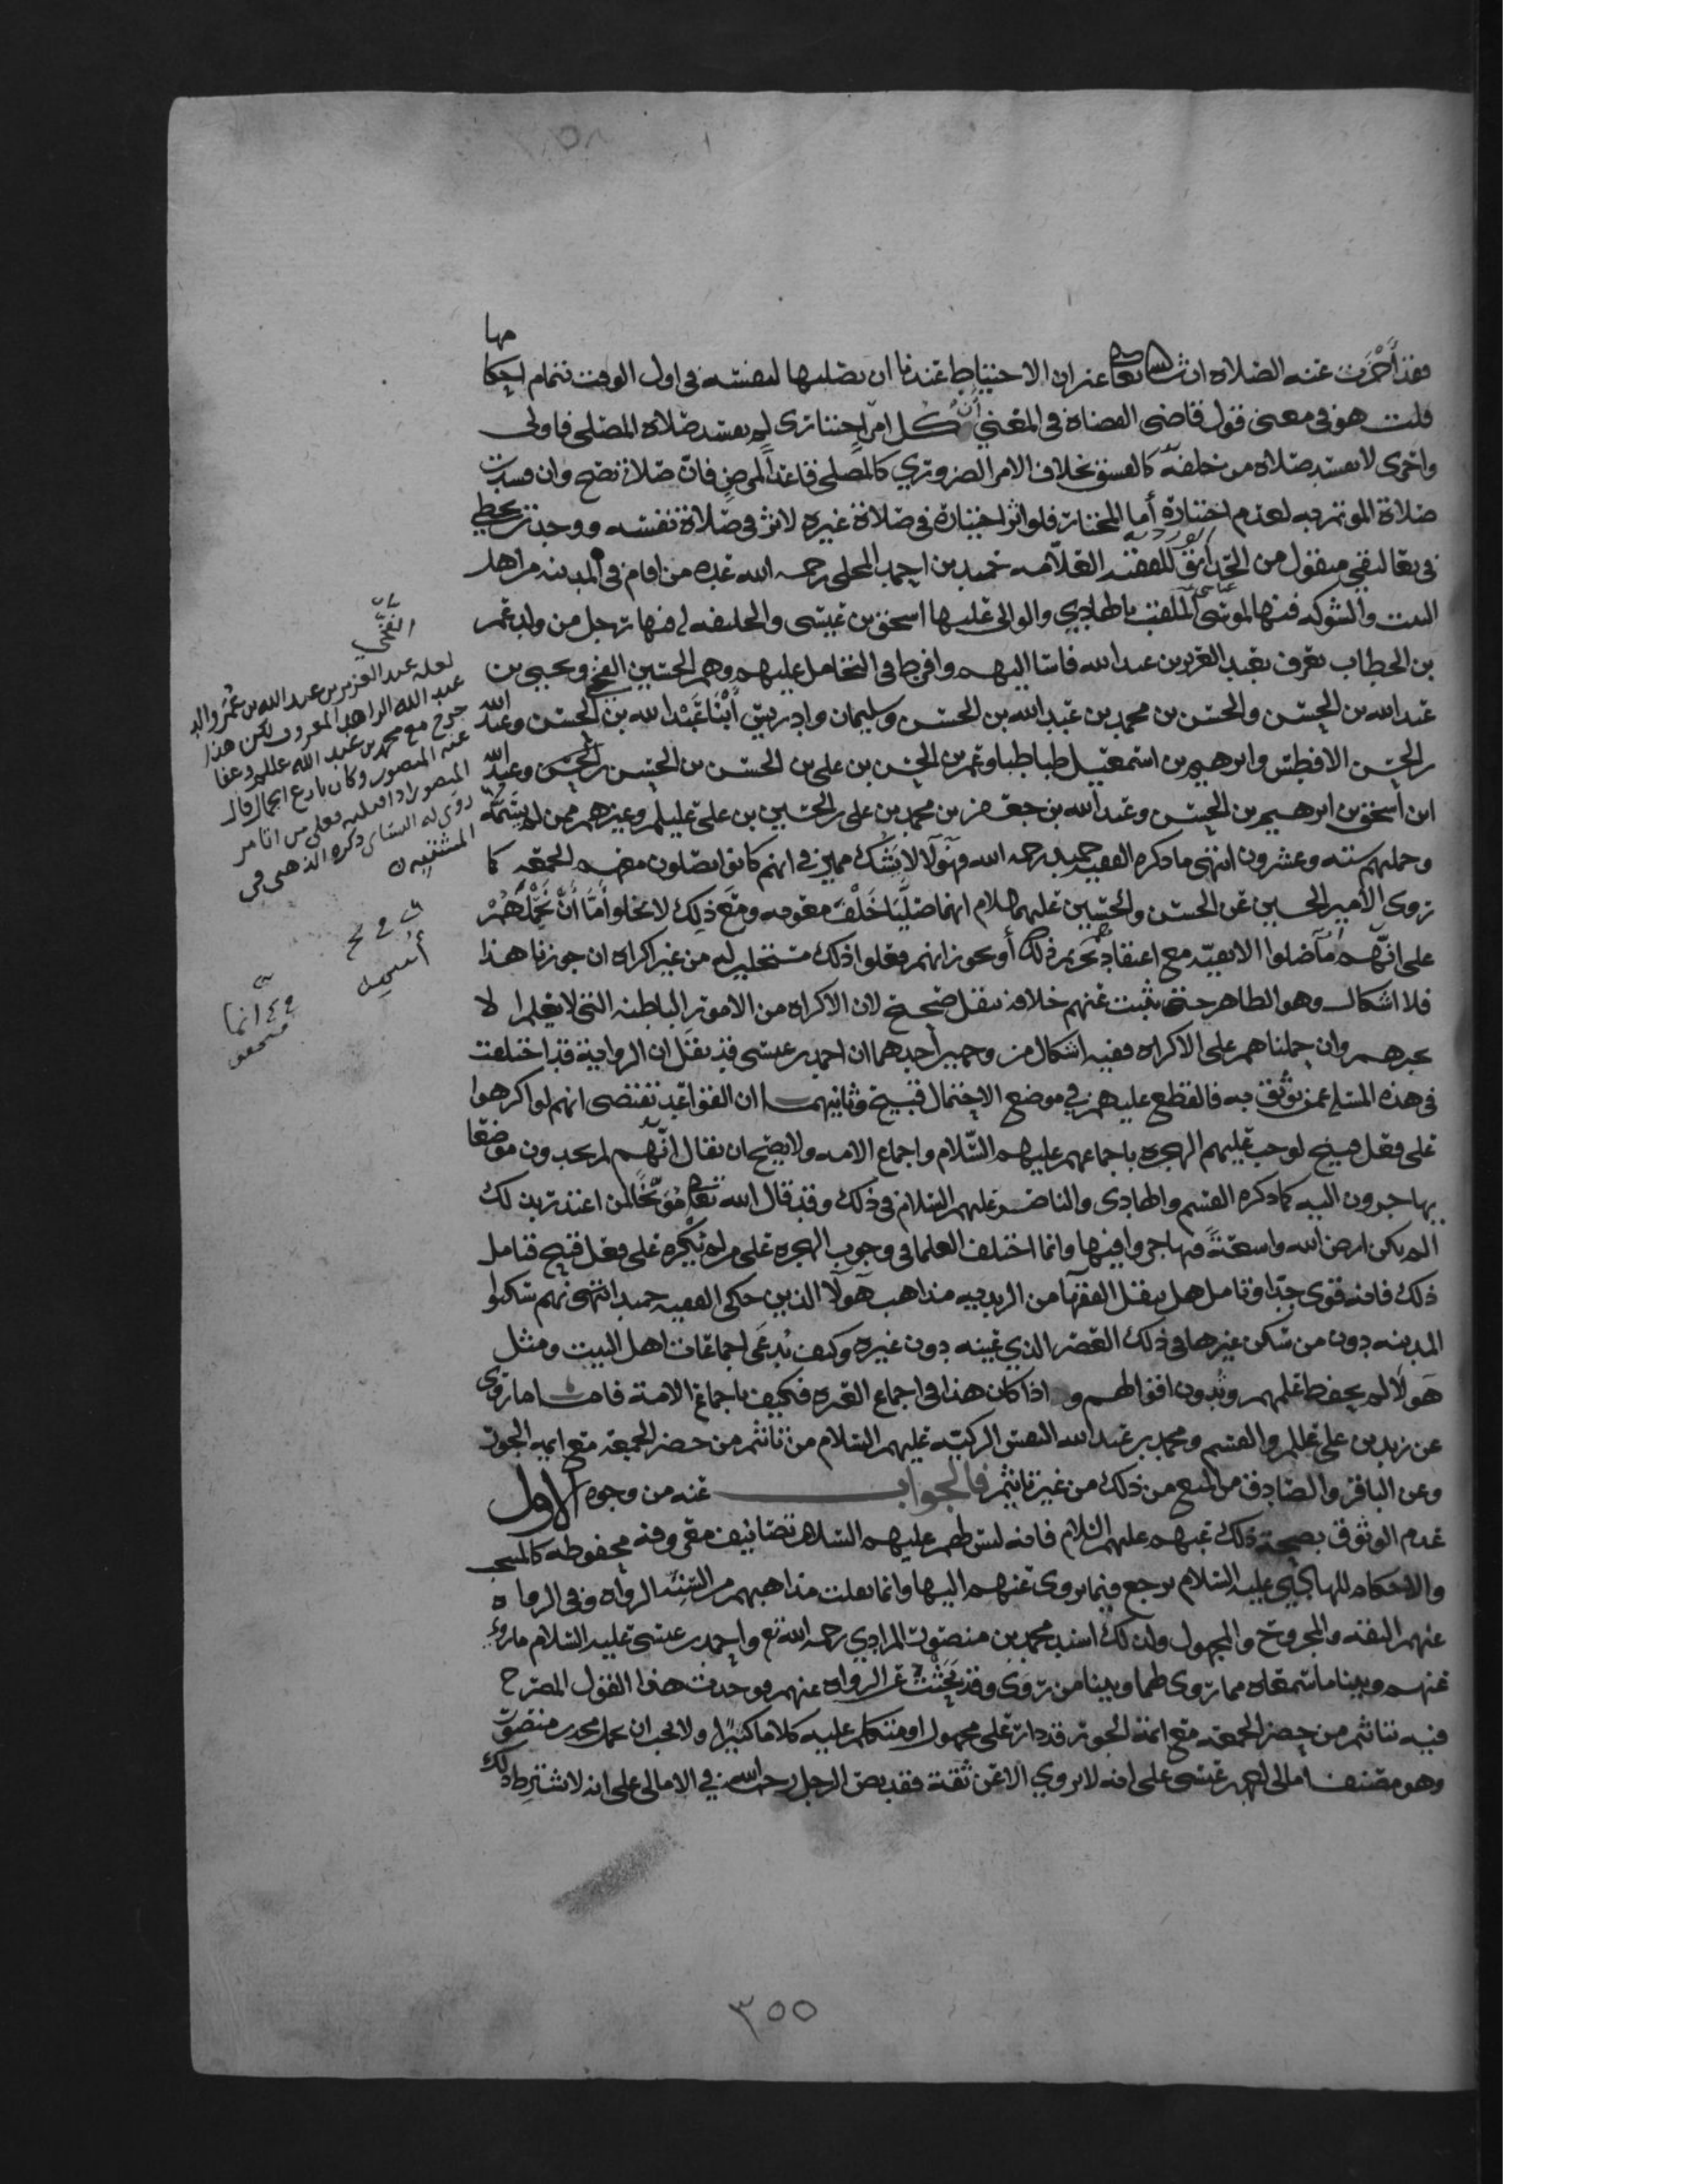 فقد أجزت عنه الصلاة ان شاء الله تعالى غير ان الاحتياط عندنا ان يصليها لنفسه في اول الوقت بتمام احكا
مها
قلت هو في معنى قول قاضي القضاة في المغني أن كل امر اختياري لم يفسد صلاة المصلي فاولى
واحرى لا يفسد صلاة من خلفه كالفسق بخلاف الامر الضروري كالمصلي قاعدا لمرض فان صلاته تصح وان فسدت
صلاة الموتم به لعدم اختياره أما المختار فلو اثر اختياره في صلاة غيره لاثر في صلاة نفسه ووجدت بخطي
في تعاليقي منقول من الحدائق الوردية للفقيه العلامه حميد بن احمد المحلي رحمه الله عده من اقام في المدينه من اهل
البيت والشوكه فيها لموسى الملقب بالهادي والوالي عليها اسحق بن عيسى والخليفه له فيها رجل من ولد عمر
بن الخطاب يعرف بعبد العزيز بن عبد الله فاسا اليهم وافرط في التحامل عليهم وهم الحسين الفخي ويحيى بن
عبد الله بن الحسن والحسن بن محمد بن عبد الله بن الحسن وسليمان وادريس أبنا عبد الله بن الحسن وعبد الله
بن الحسن الافطس وابرهيم بن اسمعيل طباطبا وعمر بن الحسن بن علي بن الحسن بن الحسن بن الحسن وعبد الله
ابن أسحق بن ابرهيم بن الحسن وعبد الله بن جعفر بن محمد بن علي بن الحسين بن علي عليلم وغيرهم ممن لم يسمه
وجملتهم ستة وعشرون انتهى ما ذكره الفقيه حميد رحمه الله فهولا لا يشك مميز في انهم كانوا يصلون معهم الجمعه كما
روى الأمير الحسين عن الحسن والحسين عليهما السلام انهما صليا خلف معويه ومع ذلك لا يخلو أمّا أن نحملهم
على انهم ما صلوا الا تقيّه مع اعتقادهم تحريم ذلك أو نجوز انهم فعلوا ذلك مستحلين له من غير اكراه ان جوزنا هذا
فلا اشكال وهو الظاهر حتى يثبت عنهم خلافه بنقل صحيح لان الاكراه من الامور الباطنه التي لا يعلمها الا
بخبرهم وان حملناهم على الاكراه ففيه اشكال من وجهين أحدهما ان احمد بن عيسى قد نقل ان الرواية قد اختلفت
في هذه المسئله عمن يوثق به فالقطع عليهم في موضع الاحتمال قبيح وثانيهما ان القواعد تقتضي انهم لو اكرهوا
على فعل قبيح لوجب عليهم الهجره باجماعهم عليهم السّلام واجماع الامه ولا يصح ان يقال انّهم لم يجدون موضعا
يهاجرون اليه كما ذكره القسم والهادي والناصر عليهم السلام في ذلك وقد قال الله تعالى مُوَبّخًا لمن اعتذر بذلك
الم تكن ارض الله واسعةً فتهاجروا فيها وانما اختلف العلما في وجوب الهجره على من لم يُكره على فعل قبيح فتامل
ذلك فانه قوي جدا وتامل هل ينقل الفقهآ من الزيديه مذاهب هولا الذين حكى الفقيه حميد انهم سكنوا
المدينه دون من سكن غيرها في ذلك العصر الذي عينه دون غيره وكيف يُدعَى اجماعات اهل البيت ومثل
هولا لم يحفظ علمهم وتدون اقوالهم و اذا كان هذا في اجماع العتره فكيف باجماع الامة فاما ما روي
عن زيد بن علي عللم والقسم ومحمد بن عبد الله النفس الزكيه عليهم السلام من تاثيم من حضر الجمعه مع ايمه الجور
وعن الباقر والصادق من المنع من ذلك من غير تاثيم فالجواب عنه من وجوه الاول
عدم الوثوق بصحة ذلك عنهم عليهم السلام فانه ليس لهم عليهم السلام تصانيف معروفه محفوظه كالمنتخب
والاحكام للهادي عليه السلام يرجع فيما يروى عنهم اليها وانما نقلت مذاهبهم من السنة الرواه وفي الرواه
عنهم الثقه والمجروح والمجهول ولذلك اسند محمد بن منصور المرادي رحمه الله تع واحمد بن عيسى عليه السلام ما روي
عنهم وبينا ما سمعاه مما روي لهما وبينا من روى وقد بحثت عن الرواه عنهم فوجدت هذا القول المصرح
فيه بتاثيم من حضر الجمعه مع ائمة الجور قد دار على مجهول او متكلم عليه كلاما كثيرًا ولا يجب ان نحمل محمد بن منصور
وهو مصنف امالي احمد بن عيسى على انه لا يروي الا عن ثقة فقد نص الرجل رحمه الله في الامالي على انه لا يشترط ذلك
الفخي
لعله عبد العزيز بن عبد الله بن عمر والد
عبد الله الزاهد المعروف لكن هذا
خرج مع محمد بن عبد الله عللم وعفا
عنه المنصور وكان بارع الجمال قال
روى له النسائي ذكره الذهبي في
أسمعيل
٣٥٥